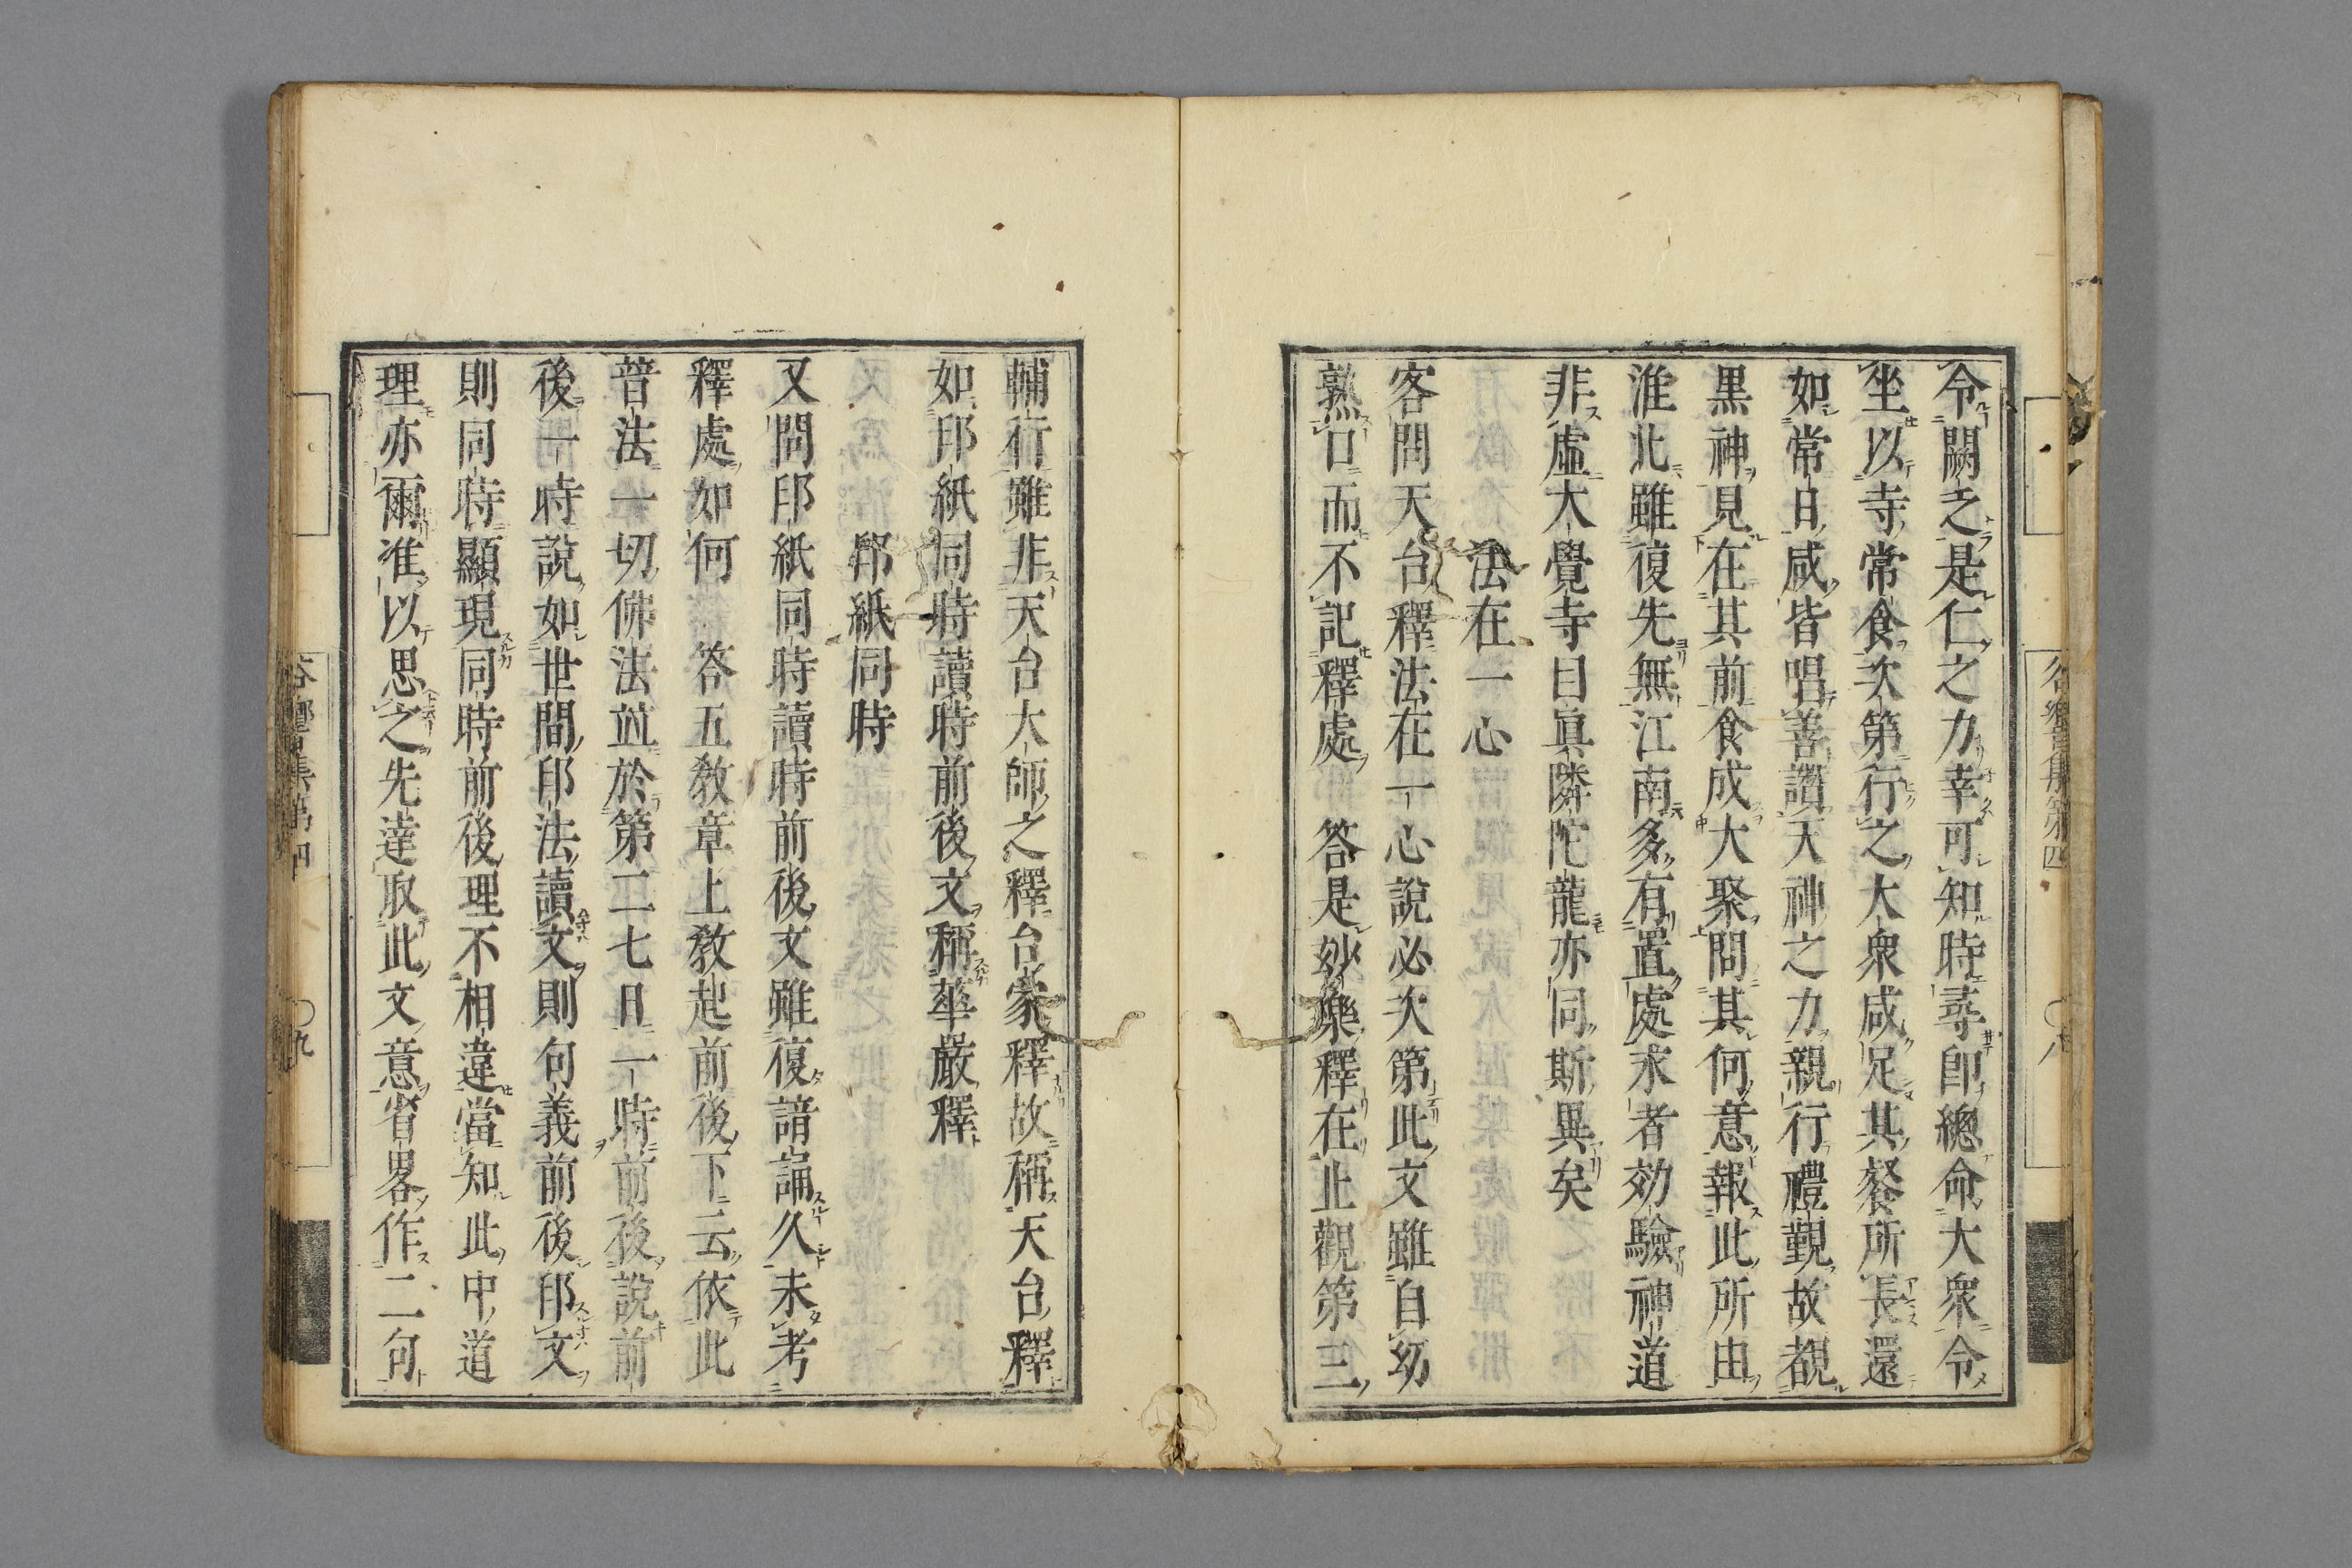 令闕乏是仁之力幸可知時尋卽總命大衆令
坐以寺常食次第行之大衆咸足其餐所長還
如常日咸皆唱善讚天神之力親行禮覲故覩
黒神見在其前食成大聚問其何意報此所由
淮北雖復先無江南多有置處求者効驗神道
非虛大覺寺曰眞隣陀龍亦同斯異矣
法在一心
客問天台釋法在一心說必次第此文雖自幼
熟口而不記釋處　答是妙樂釋在止觀第三
谷響集第四
〇八
輔行雖非天台大師之釋台家釋故稱天台釋
如印紙同時讀時前後文稱華嚴釋
印紙同時
又問印紙同時讀時前後文雖復諳誦久未考
釋處如何　答五敎章上敎起前後下云依此
普法一切佛法竝於第二七日一時前後說前
後一時說如世間印法讀文則句義前後印文
則同時顯現同時前後理不相違當知此中道
理亦爾准以思之先達取此文意省畧作二句
谷響集第四
〇九